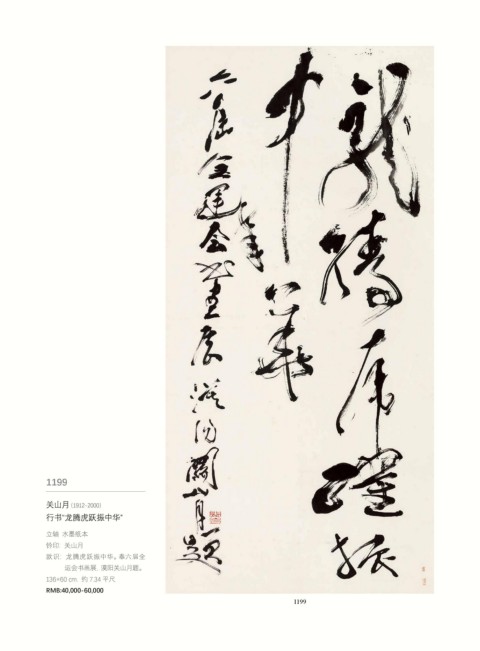 龍騰虎躍振
中華
奉
六届全運会书畫展漠阳關山月題
1199
关山月 (1912-2000)
行书“龙腾虎跃振中华”
立轴 水墨纸本
钤印：关山月
款识：龙腾虎跃振中华。奉六届全
运会书画展，漠阳关山月题。
136×60 cm 约 7.34 平尺
RMB:40,000-60,000
1199